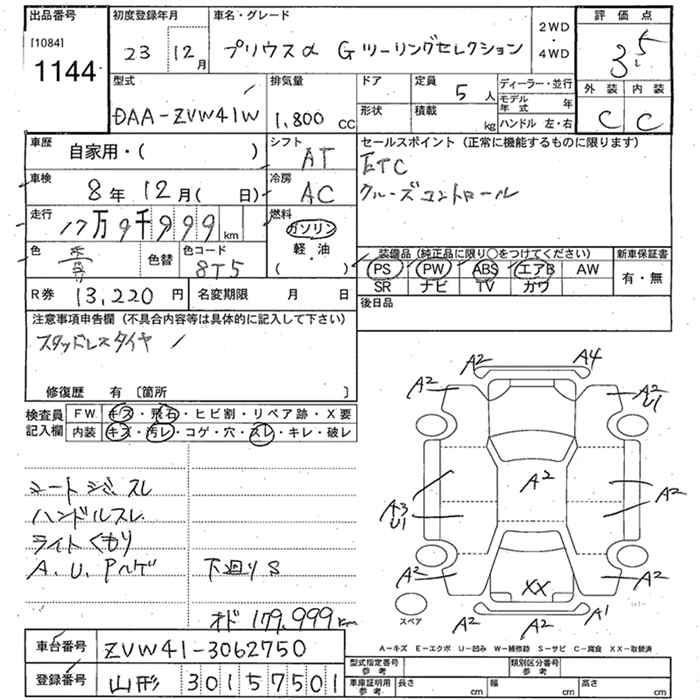 出品番号
[1084]
1144
初度登録年月
23 12月
車名・グレード
プリウスα Gツーリングセレクション
2WD・4WD
評価点
3.5
外装 内装
C C
型式
DAA-ZVW41W
排気量
1,800cc
ドア
形状
定員
5人
積載
kg
ディーラー・並行
モデル年式 年
ハンドル 左・右
車歴
自家用・( )
シフト
AT
セールスポイント(正常に機能するものに限ります)
ETC
クルーズコントロール
車検
8年 12月( 日)
冷房
AC
走行
17万9千999km
燃料
ガソリン
軽・油
( )
色
色替
色コード
8T5
装備品(純正品に限り〇をつけてください)
PS PW ABS エアB AW
SR ナビ TV カワ
新車保証書
有・無
R券 13,220円
名変期限 月 日
後日品
注意事項申告欄(不具合内容等は具体的に記入して下さい)
スタッドレスタイヤ
修復歴 有〔箇所 〕
検査員記入欄
FW キズ・飛石・ヒビ割・リペア跡・X要
内装 キズ・汚レ・コゲ・穴・スレ・キレ・破レ
シートシミ、スレ
ハンドルスレ
ライトくもり
A.U.Pハゲ 下廻りS
オド 179,999km
A2 A4
A2 A2 U1
A2
A3 U1
A2
A2 A2
XX
A2 A2 A1
スペア
A-キズ E-エクボ U-凹み W-補修跡 S-サビ C-腐食 XX-取替済
車台番号 ZVW41-3062750
登録番号 山形 301 5 7501
型式指定番号 参考
類別区分番号 参考
車庫証明用 参考 長さ cm 幅 cm 高さ cm